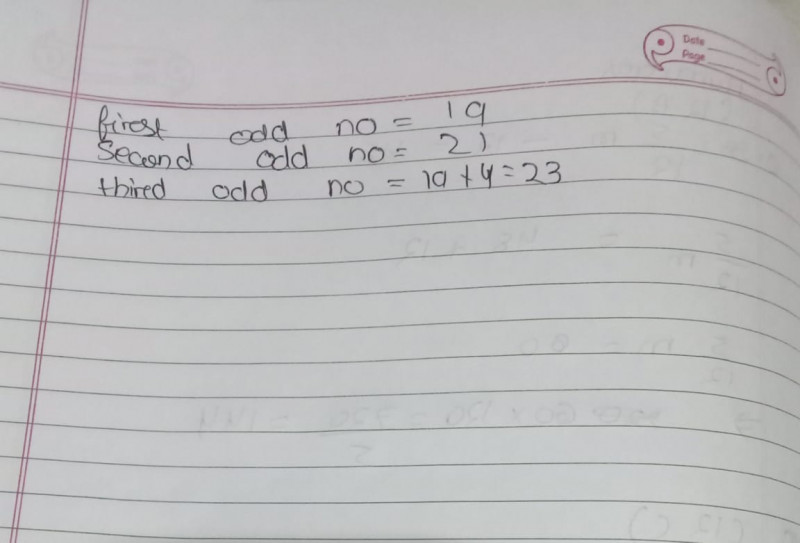 Date
Page
first odd no = 19
Second odd no = 21
third odd no = 19 + 4 = 23